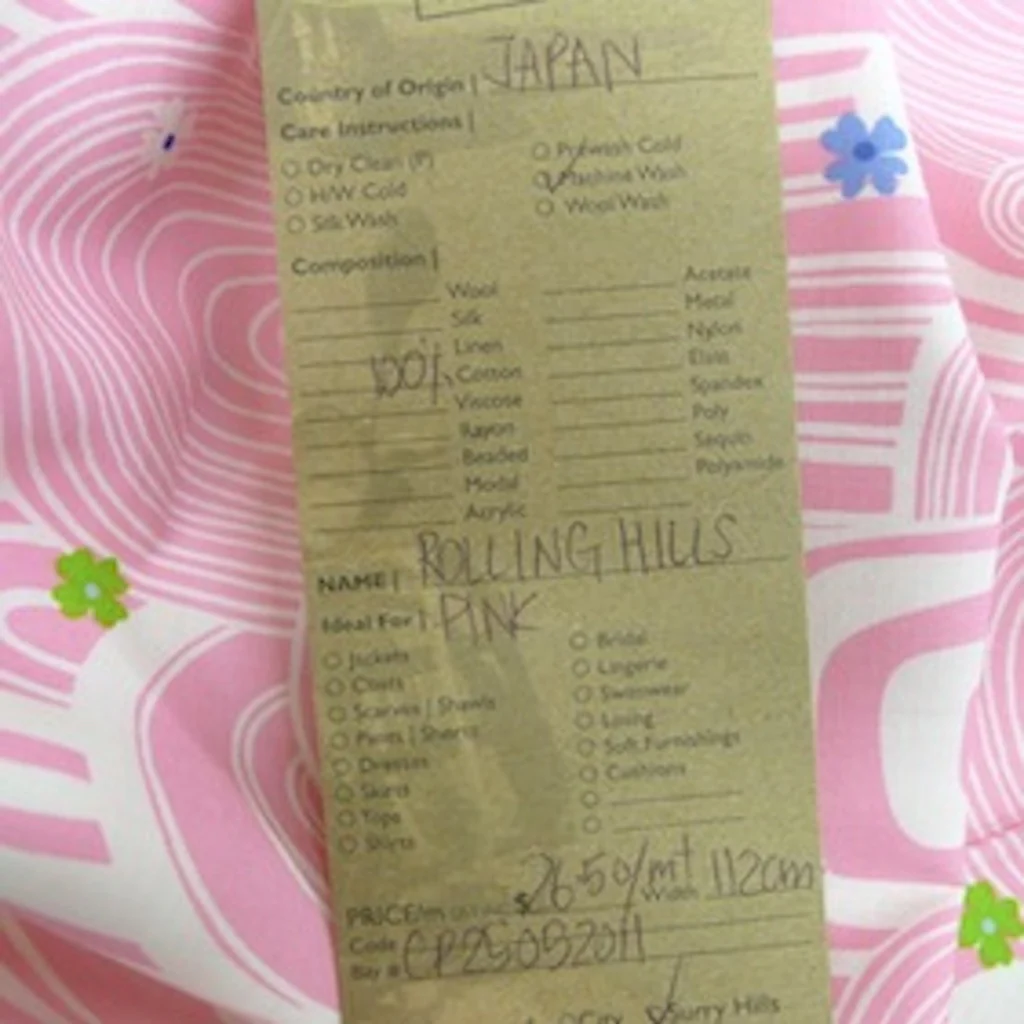 Country of Origin | JAPAN
Care Instructions |
Dry Clean (P) Prewash Cold
H/W Cold Machine Wash
Silk Wash Wool Wash
Composition |
Wool Acetate
Silk Metal
Linen Nylon
100% Cotton Elas
Viscose Spandex
Rayon Poly
Beaded Sequin
Modal Polyamide
Acrylic
NAME | ROLLING HILLS
Ideal For | PINK
Jackets Bridal
Coats Lingerie
Scarves | Shawls Swimwear
Pants | Shorts Lining
Dresses Soft Furnishings
Skirts Cushions
Tops
Shirts
PRICE/m $26.50/mt Width 112cm
Code CP25052011
Bay #
City Surry Hills